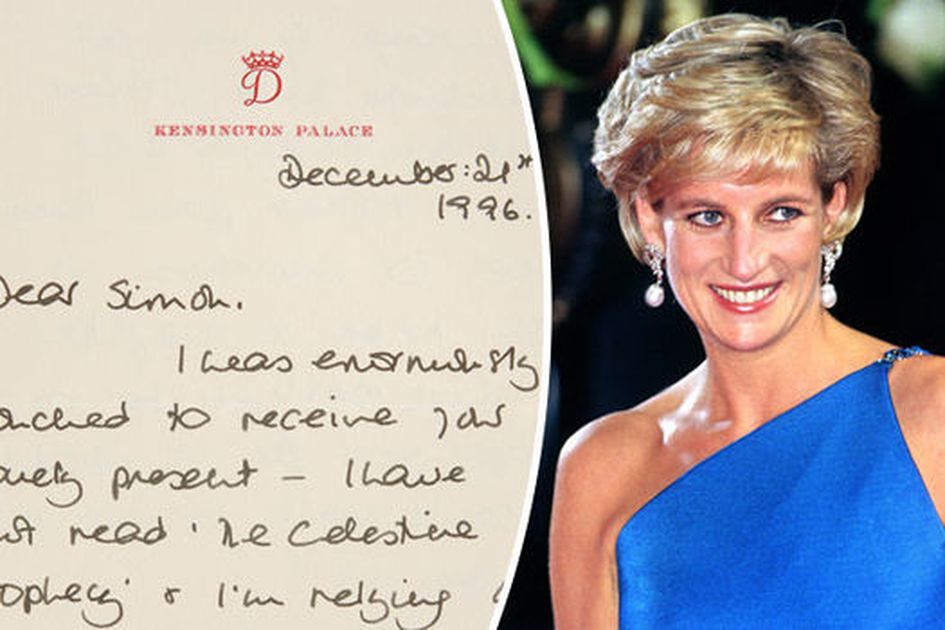 D
KENSINGTON PALACE
December:21st
1996.
Dear Simon.
I was enormously
ouched to receive your
ovely present – I have
read 'The Celestine
ophecy' & I'm relying